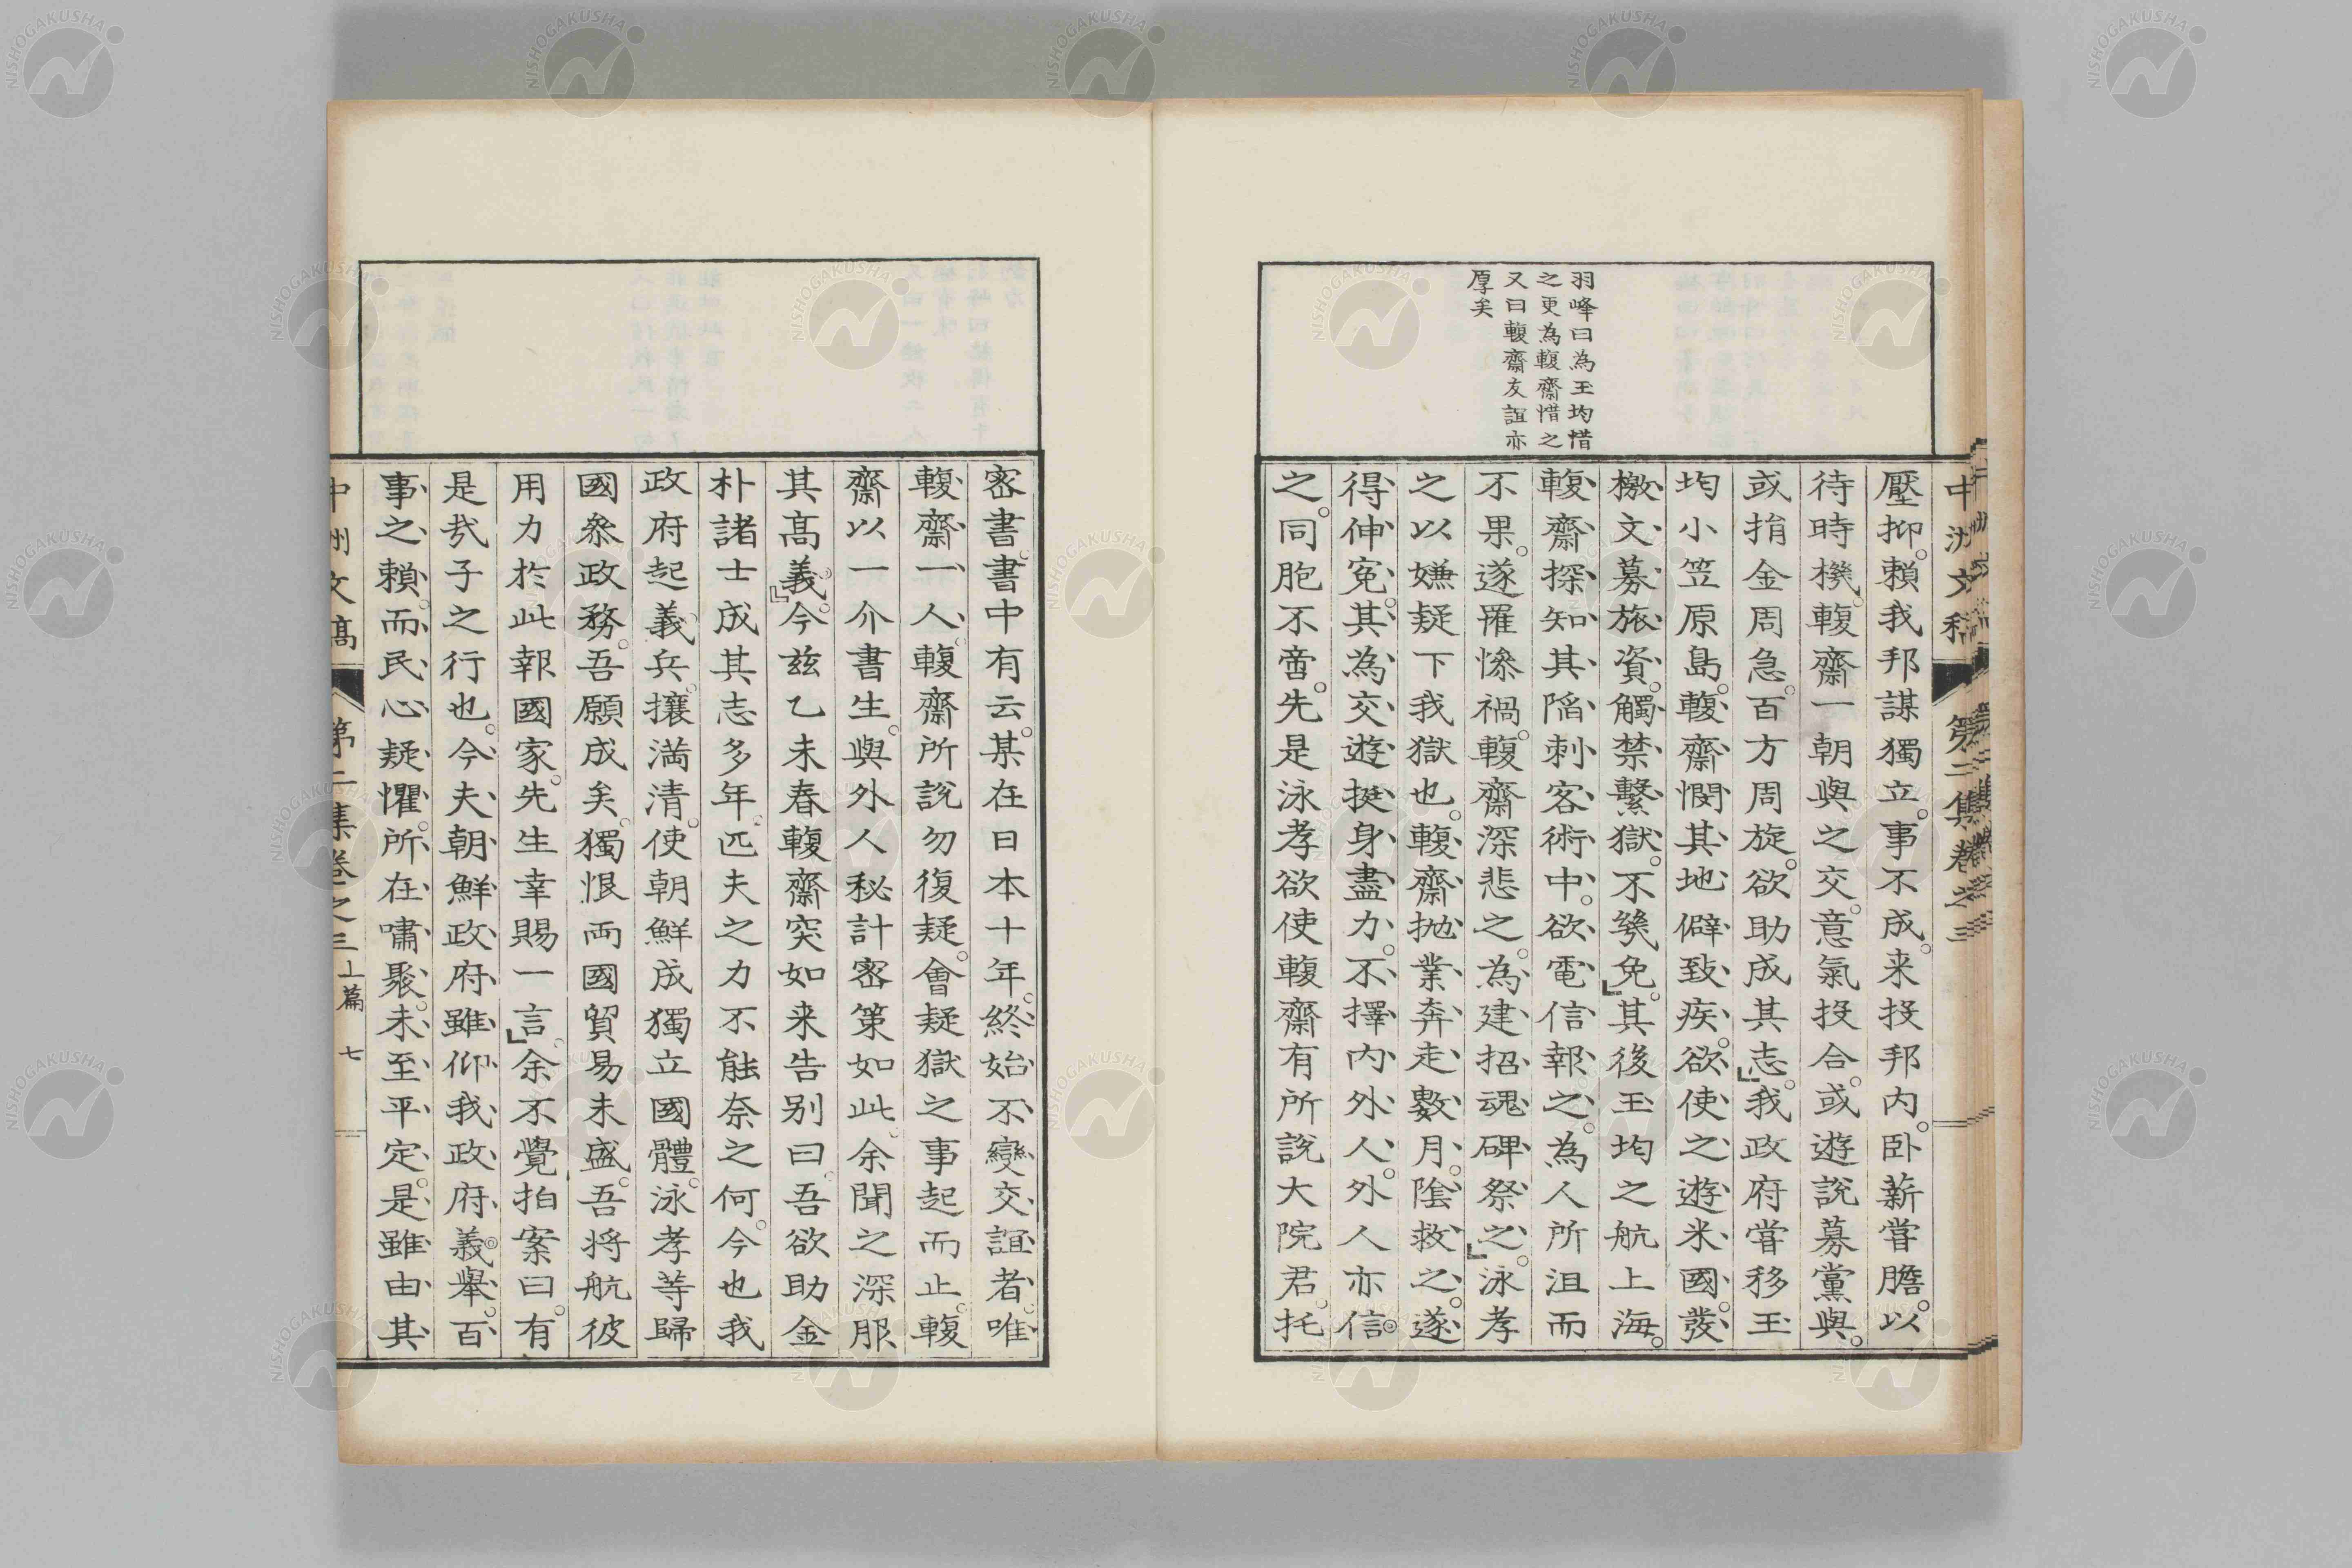 羽峰曰為玉均惜
之更為輹齋惜之
又曰輹齋友誼亦
厚矣
壓抑。賴我邦謀獨立。事不成。来投邦内。臥薪嘗膽。以
待時機。輹齋一朝與之交。意氣投合。或遊説募黨與。
或捐金周急。百方周旋。欲助成其志。」我政府嘗移玉
均小笠原島。輹齋憫其地僻致疾。欲使之遊米國。發
檄文募旅資。觸禁繫獄。不幾免。」其後玉均之航上海。
輹齋探知其陷刺客術中。欲電信報之。為人所沮而
不果。遂罹慘禍。輹齋深悲之。為建招魂碑祭之。」泳孝
之以嫌疑下我獄也。輹齋抛業奔走數月。陰救之。遂
得伸冤。其為交遊挺身盡力。不擇内外人。外人亦信
之。同胞不啻。先是泳孝欲使輹齋有所説大院君。托
中洲文稿 第二集卷之三
密書。書中有云。某在日本十年。終始不變交誼者。唯
輹齋一人。輹齋所説勿復疑。會疑獄之事起而止。輹
齋以一介書生。與外人秘計密策如此。余聞之深服
其高義。」今茲乙未春輹齋突如来告别曰。吾欲助金
朴諸士成其志多年。匹夫之力不能奈之何。今也我
政府起義兵。攘満清。使朝鮮成獨立國體。泳孝等歸
國叅政務。吾願成矣。獨恨両國貿易未盛。吾将航彼
用力於此報國家。先生幸賜一言。」余不覺拍案曰。有
是哉子之行也。今夫朝鮮政府。雖仰我政府義舉。百
事之賴。而民心疑懼。所在嘯聚。未至平定。是雖由其
中洲文稿 第二集卷之三上篇 七
NISHOGAKUSHA